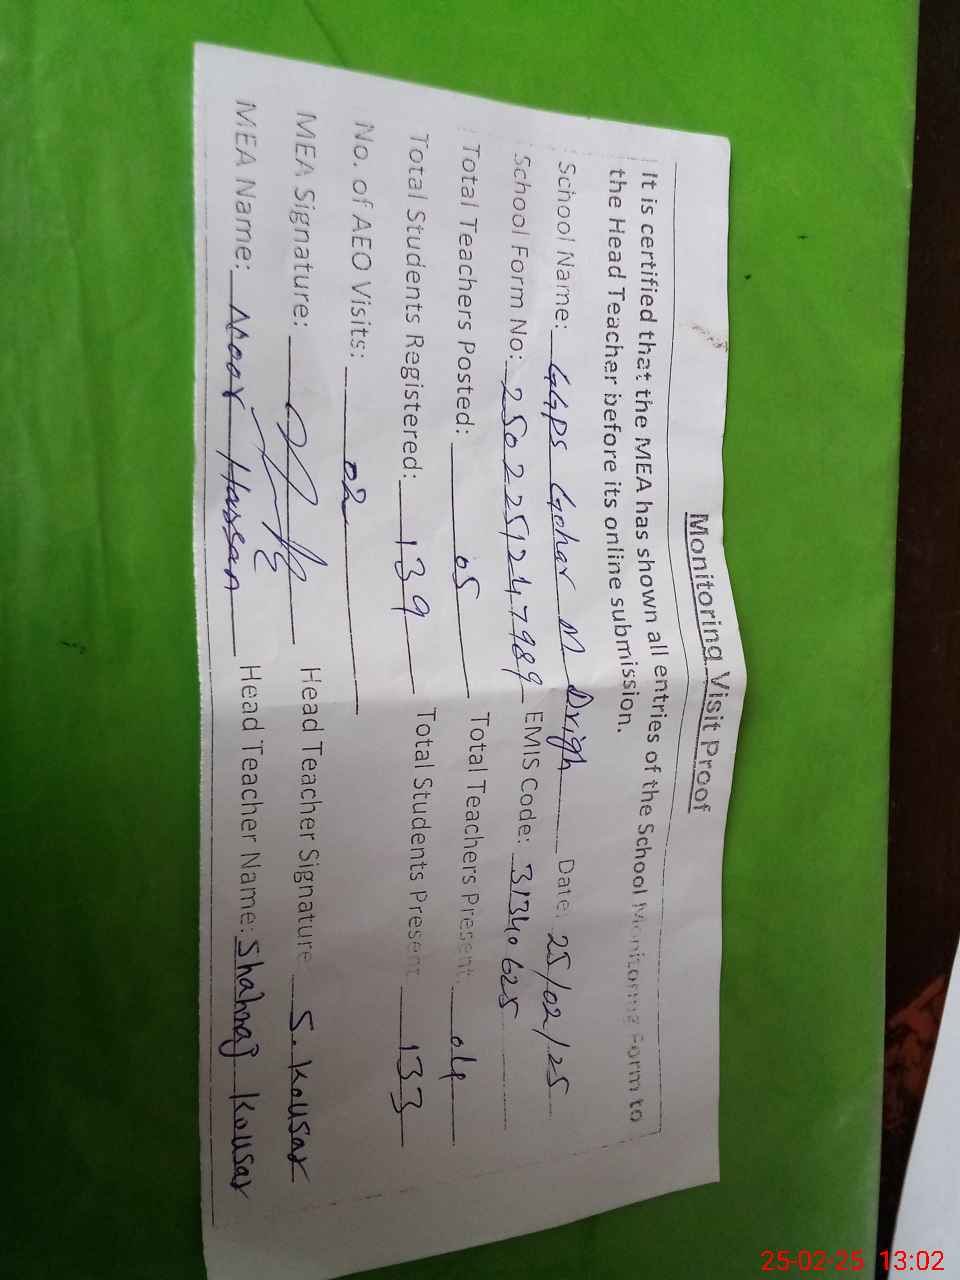 Monitoring Visit Proof
It is certified that the MEA has shown all entries of the School Monitoring Form to
the Head Teacher before its online submission.
School Name: GGPS Gohar M Drigh Date: 25/02/25
School Form No: 2502251247989 EMIS Code: 31340625
Total Teachers Posted: 05 Total Teachers Present: 04
Total Students Registered: 139 Total Students Present 133
No. of AEO Visits: 02
MEA Signature: Head Teacher Signature S. Kousar
MEA Name: Hassan Head Teacher Name: Shahnaz Kousar
25-02-25 13:02